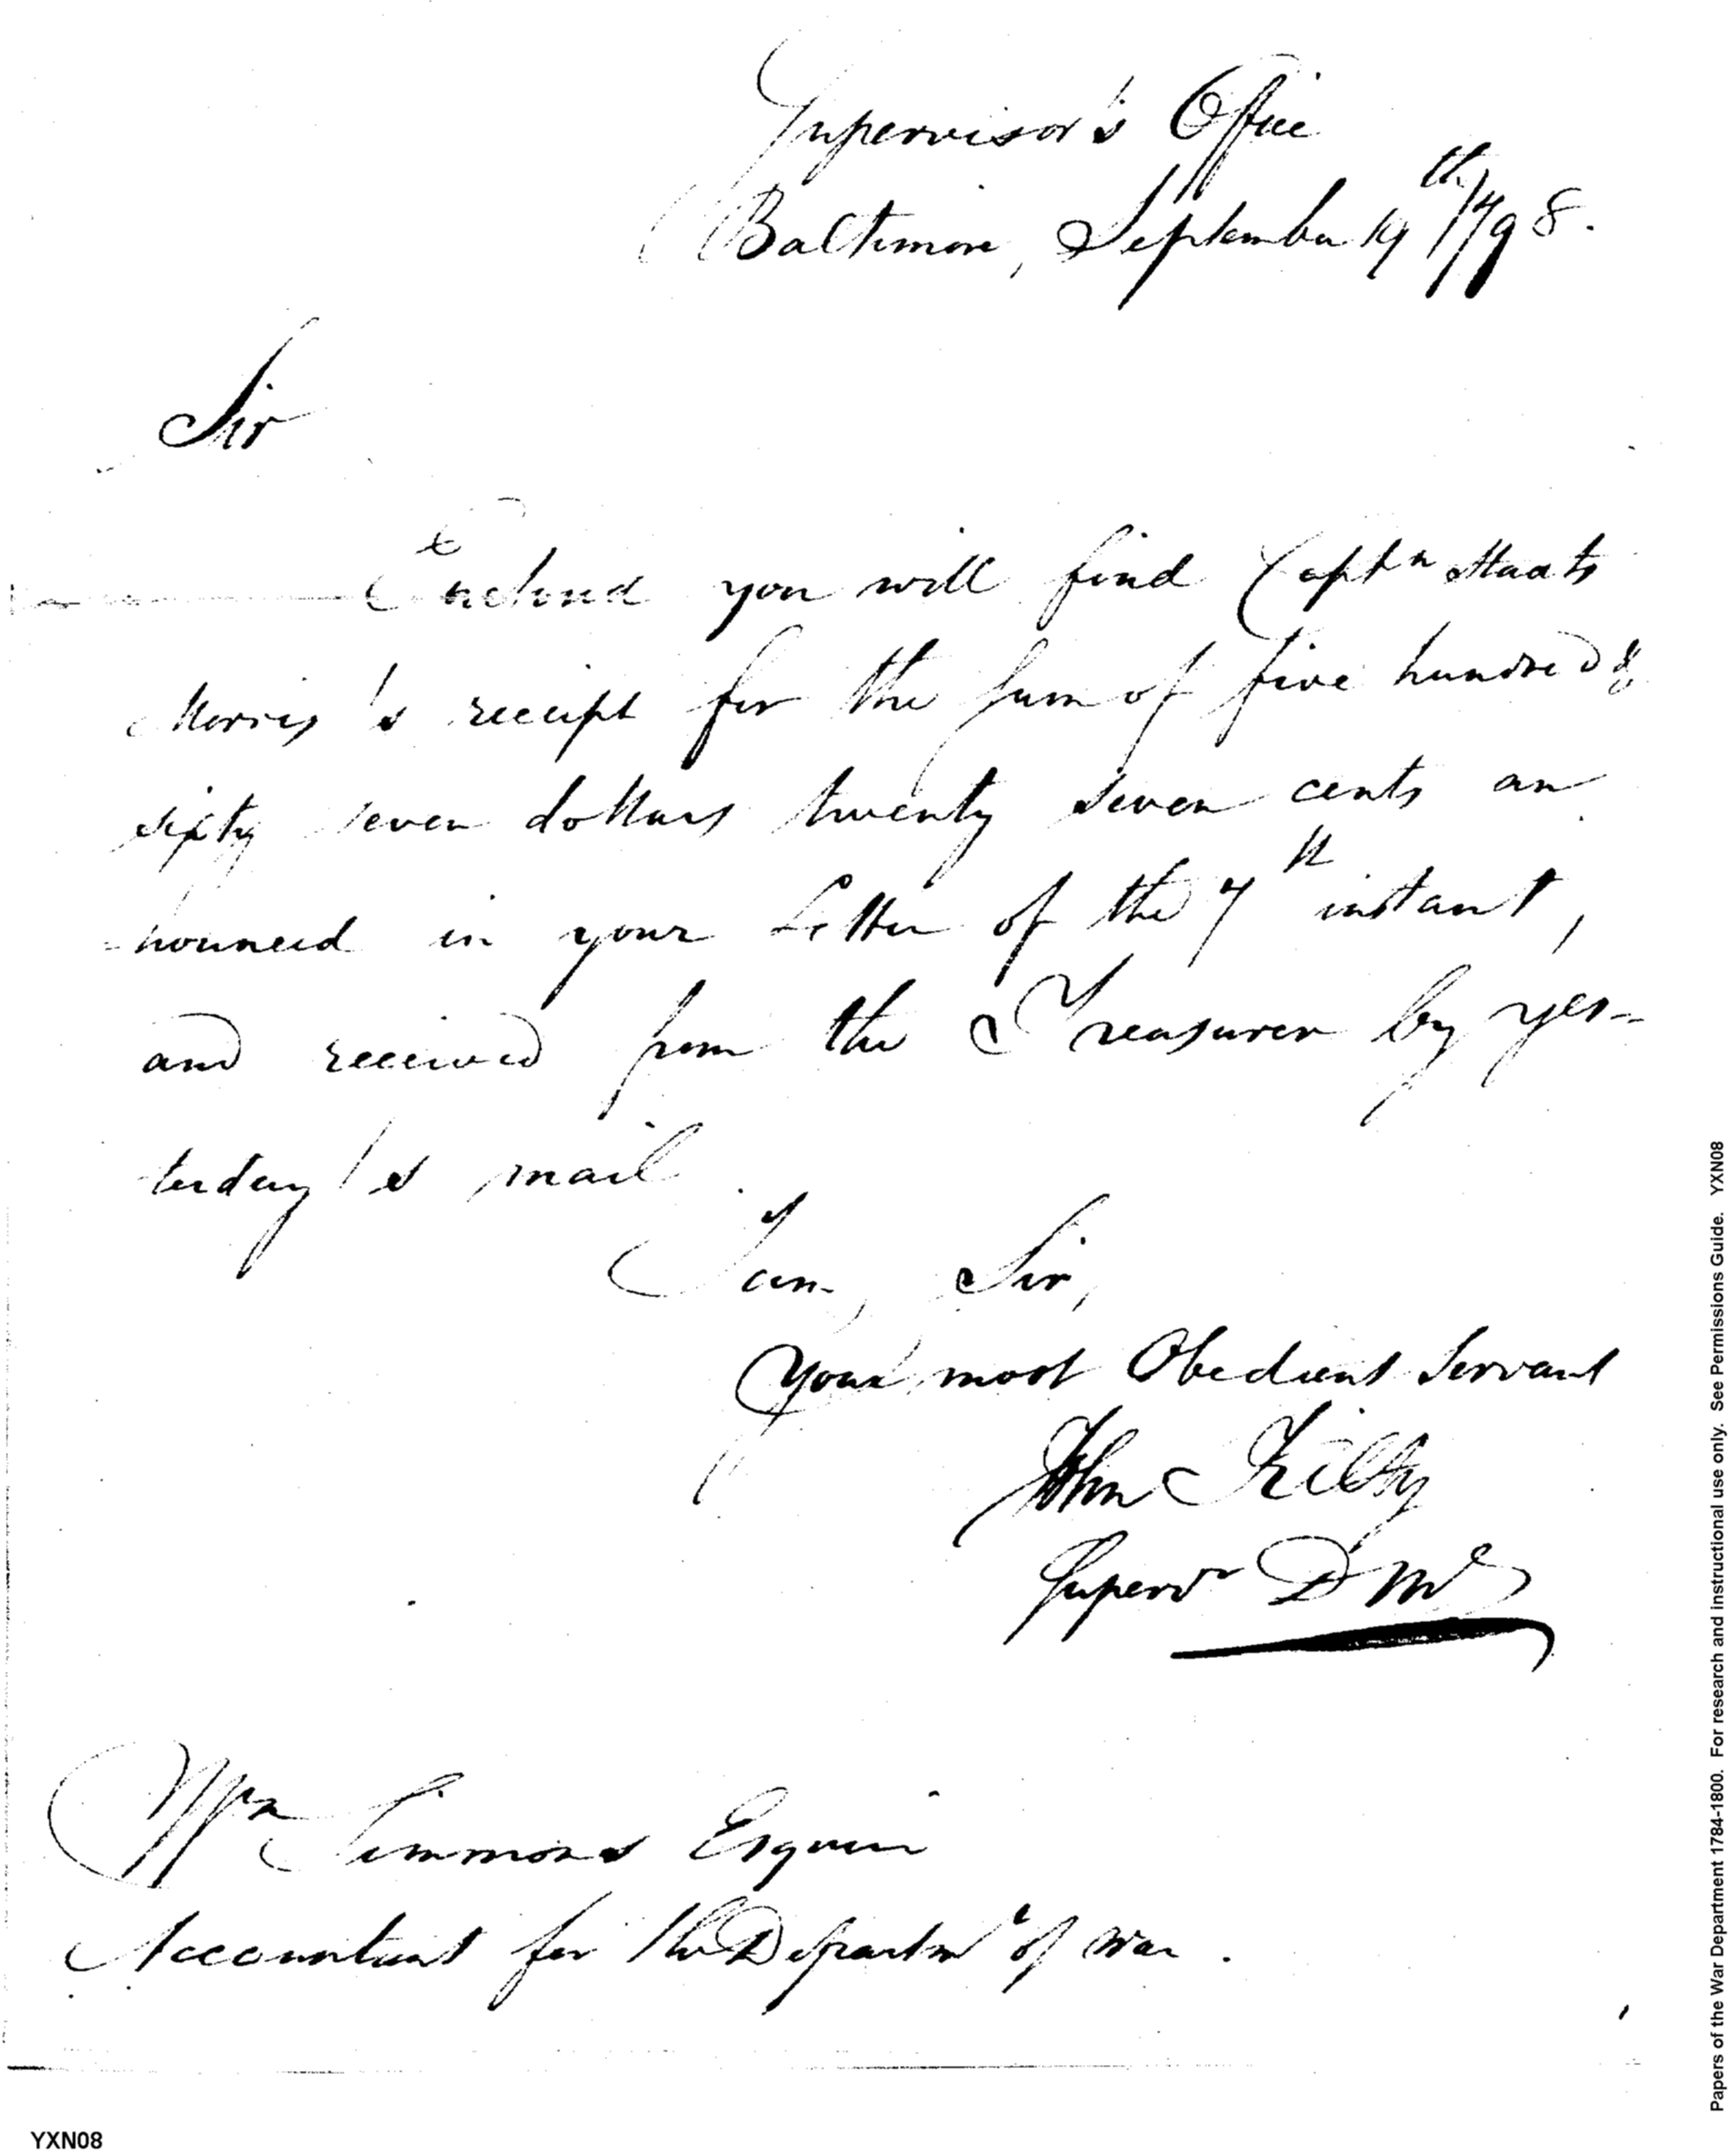 Supervisor's Office
Baltimore, September 19th 1798.
Sir
Enclosed you will find Captn Staats
Morris's receipt for the sum of five hundred &
sixty seven dollars twenty seven cents an
nounced in your Letter of the 7th instant,
and received from the Treasurer by yes-
terday's mail
I am, Sir,
Your most Obedient Servant
John Kilty
Superv DMd
Wm Simmons Esquire
Accountant for the Departmt of War.
YXN08
Papers of the War Department 1784-1800. For research and instructional use only. See Permissions Guide. YXN08